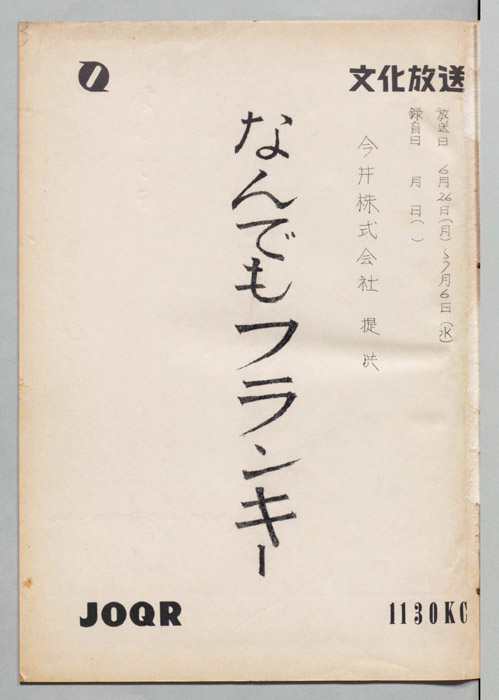 文化放送
放送日 6月26日(月)〜7月6日(水)
録音日 月 日( )
今井株式会社 提供
なんでもフランキー
JOQR
1130KC